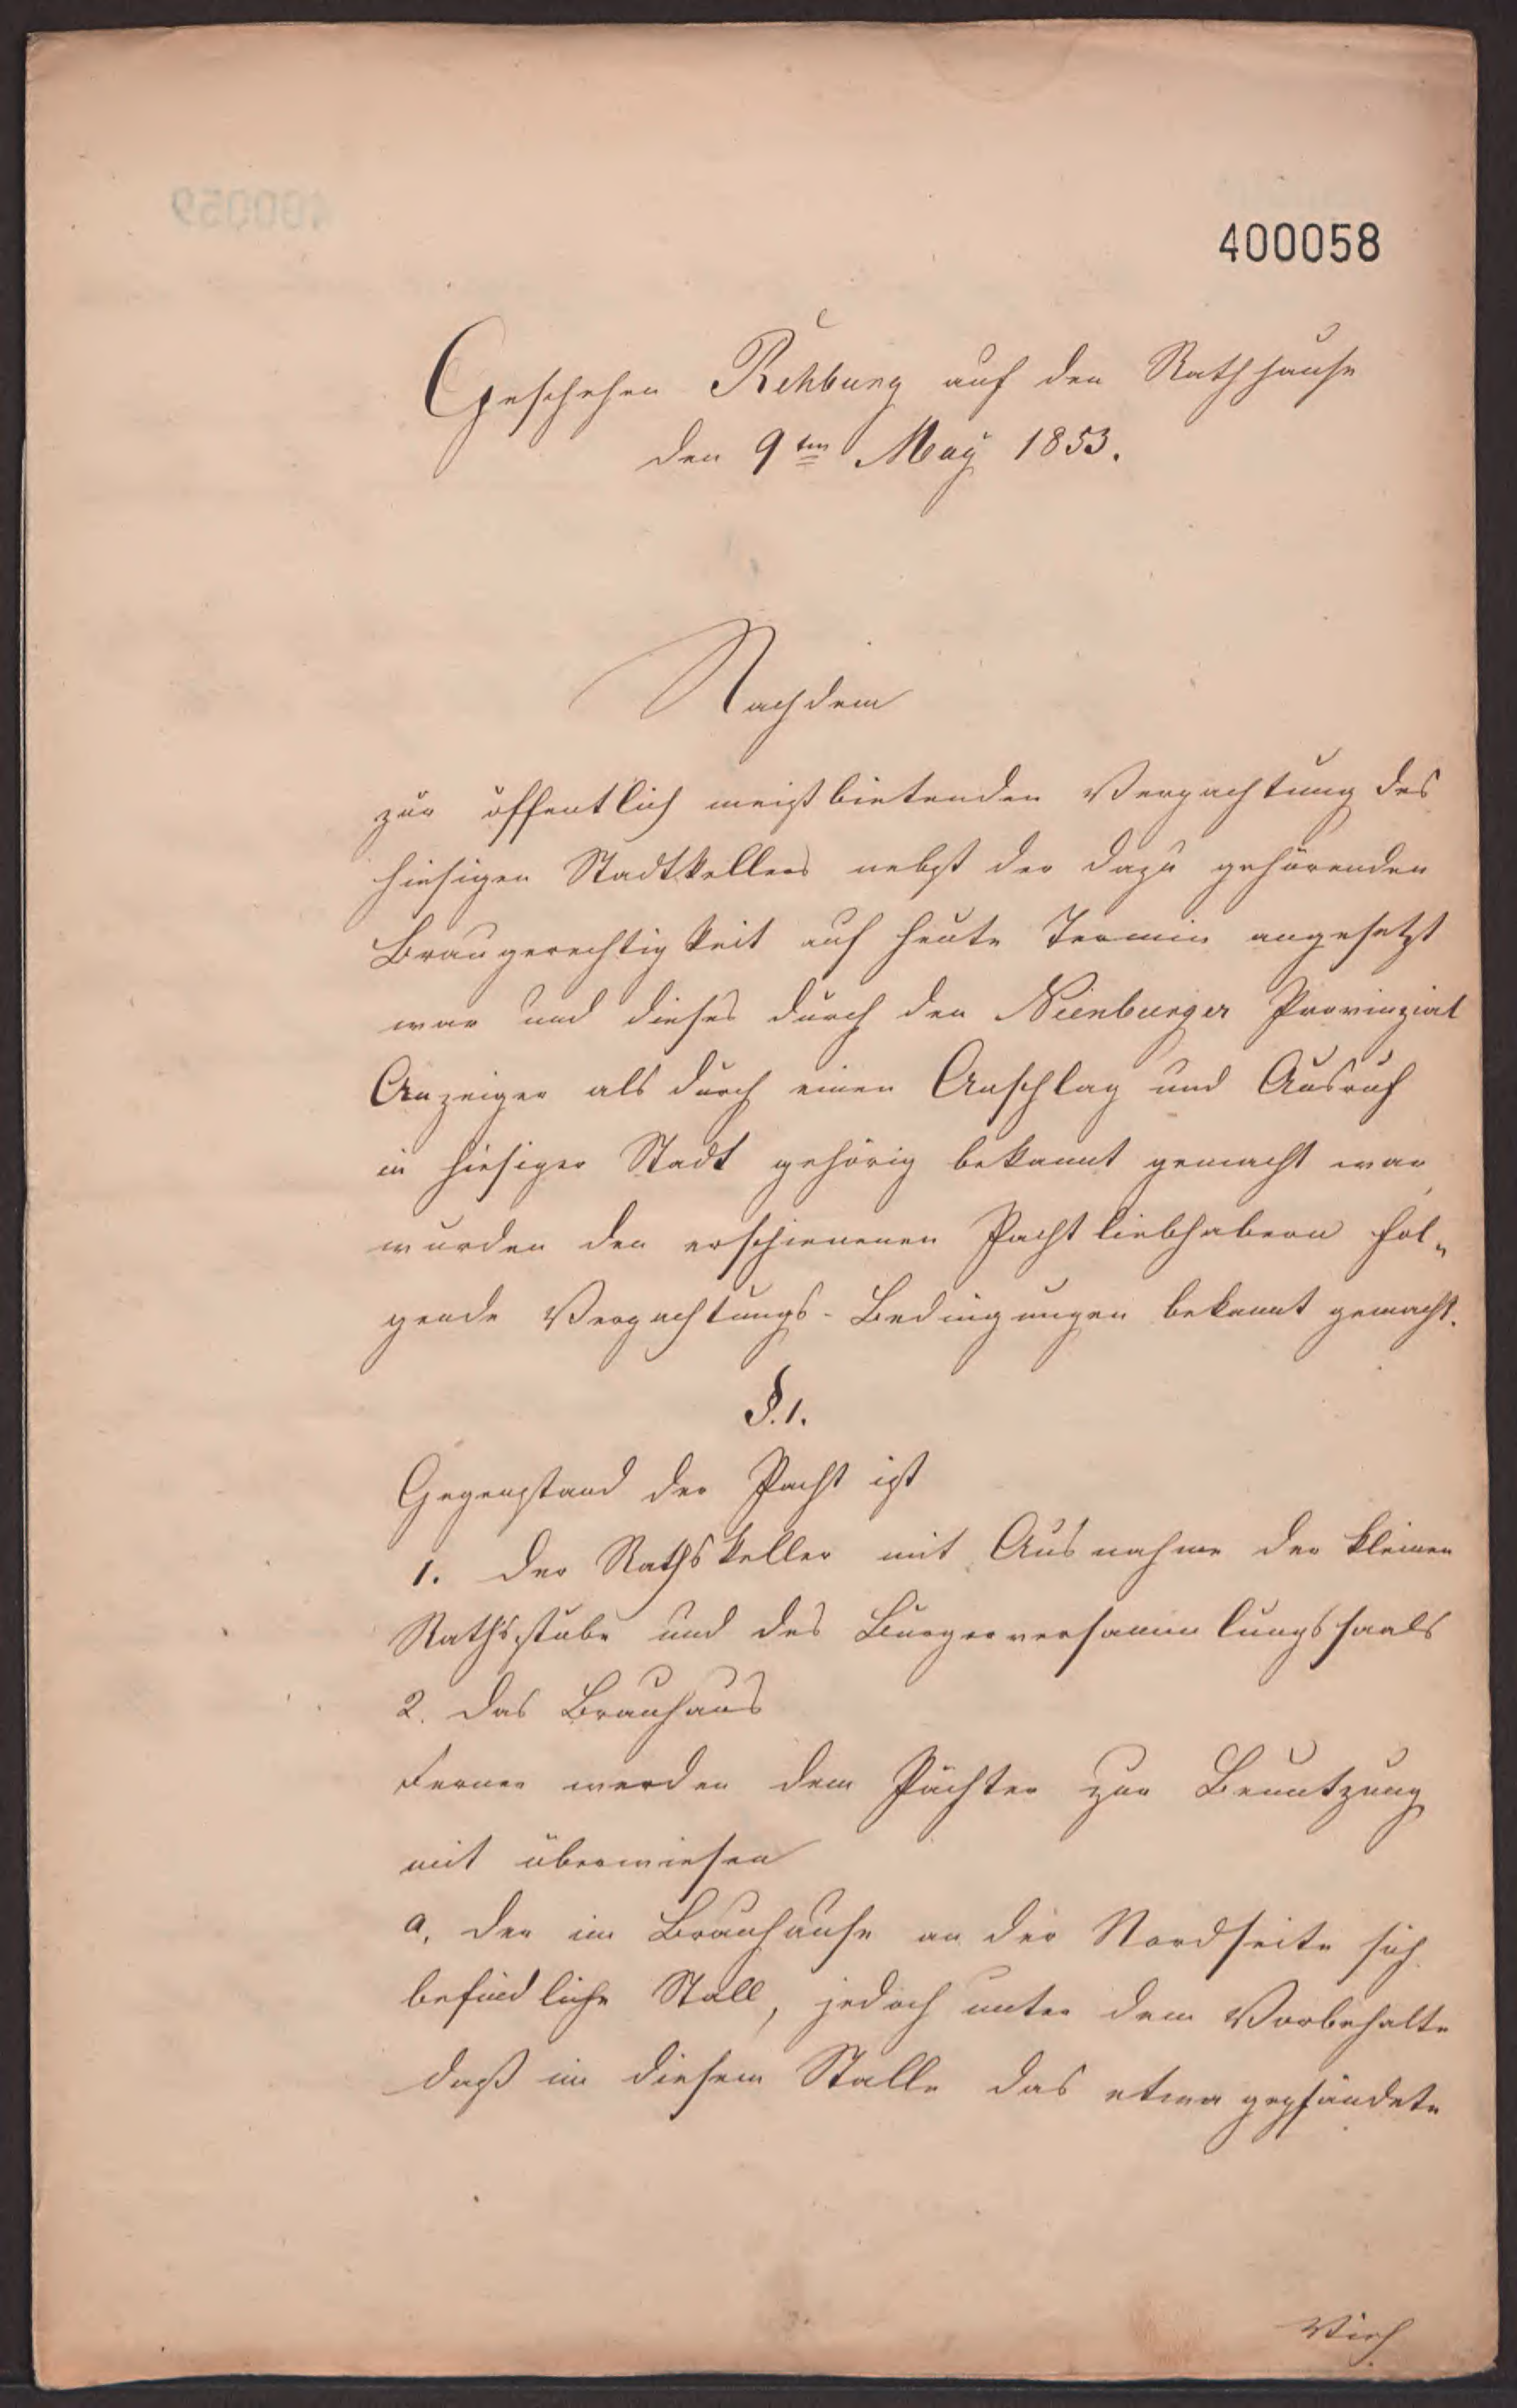 400058
Geschehen Rehburg auf den Rathhause
den 9ten May 1853.
Nachdem
zur öffentlich meistbietenden Verpachtung des
hiesigen Stadtkellers nebst der dazu gehörenden
Braugerechtigkeit auf heute Termin angesetzt
war und dieses durch den Nienburger Provinzial
Anzeiger als durch einen Anschlag und Ausruf
in hiesiger Stadt gehörig bekannt gemacht war
wurden den erschienenen Pachtliebhabern fol„
gende Verpachtungs-Bedingungen bekannt gemacht.
§. 1.
Gegenstand der Pacht ist
1. der Rathskeller mit Ausnahme der kleinen
Rathsstube und des Burgerversammlungssaals
2. das Brauhaus
Ferner werden dem Pächter zur Benutzung
mit überwiesen
a, der im Brauhause an der Nordseite sich
befindliche Stall, jedoch unter dem Vorbehalte
daß in diesem Stalle das etwa gepfändete
Vieh